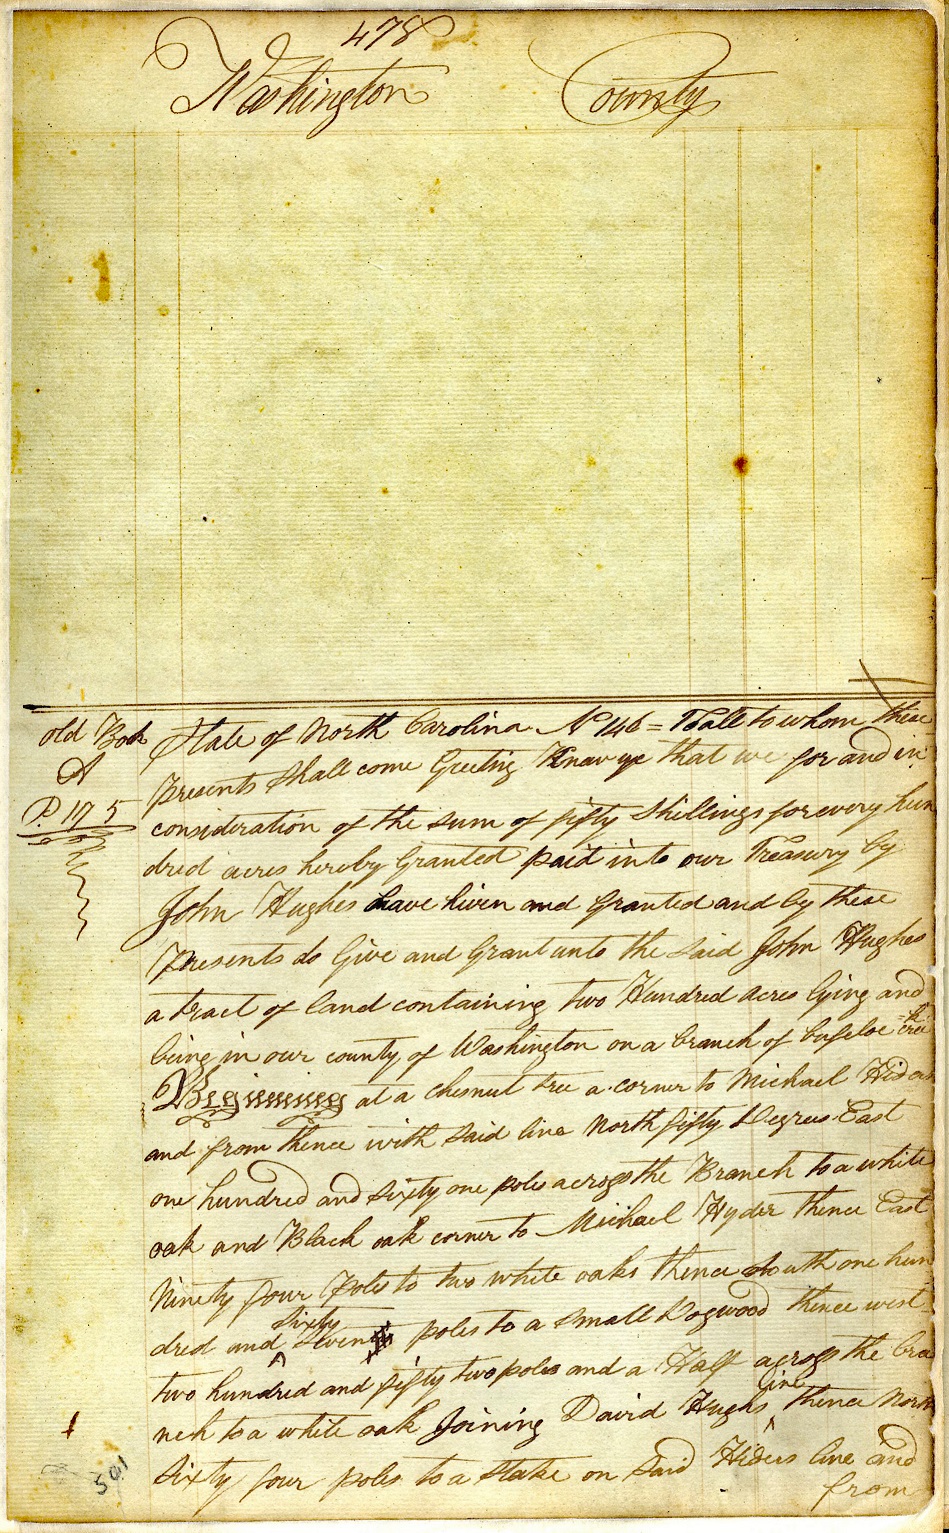 478
Washington County
old Book
A
P 175
State of North Carolina No 146 = To all to whom these
Presents shall come Greeting Know ye that we for and in
consideration of the sum of fifty Shillings for every hun
dred acres hereby Granted paid into our Treasury by
John Hughes have Given and Granted and by these
Presents do Give and Grant unto the said John Hughes
a tract of land containing two Hundred acres lying and
being in our county of Washington on a branch of bufeloe
Beginning at a chesnut tree a corner to Michael Hiders
and from thence with said line North fifty Degrees East
one hundred and sixty one poles across the Branch to a white
oak and Black oak corner to Michael Hyder thence East
Ninety four Poles to two white oaks thence South one hun
dred and sixty seven poles to a small Dogwood thence west
two hundred and fifty two poles and a Half across the bra
nch to a white oak Joining David Hughs line thence North
sixty four poles to a stake on said Hiders line and
from
501